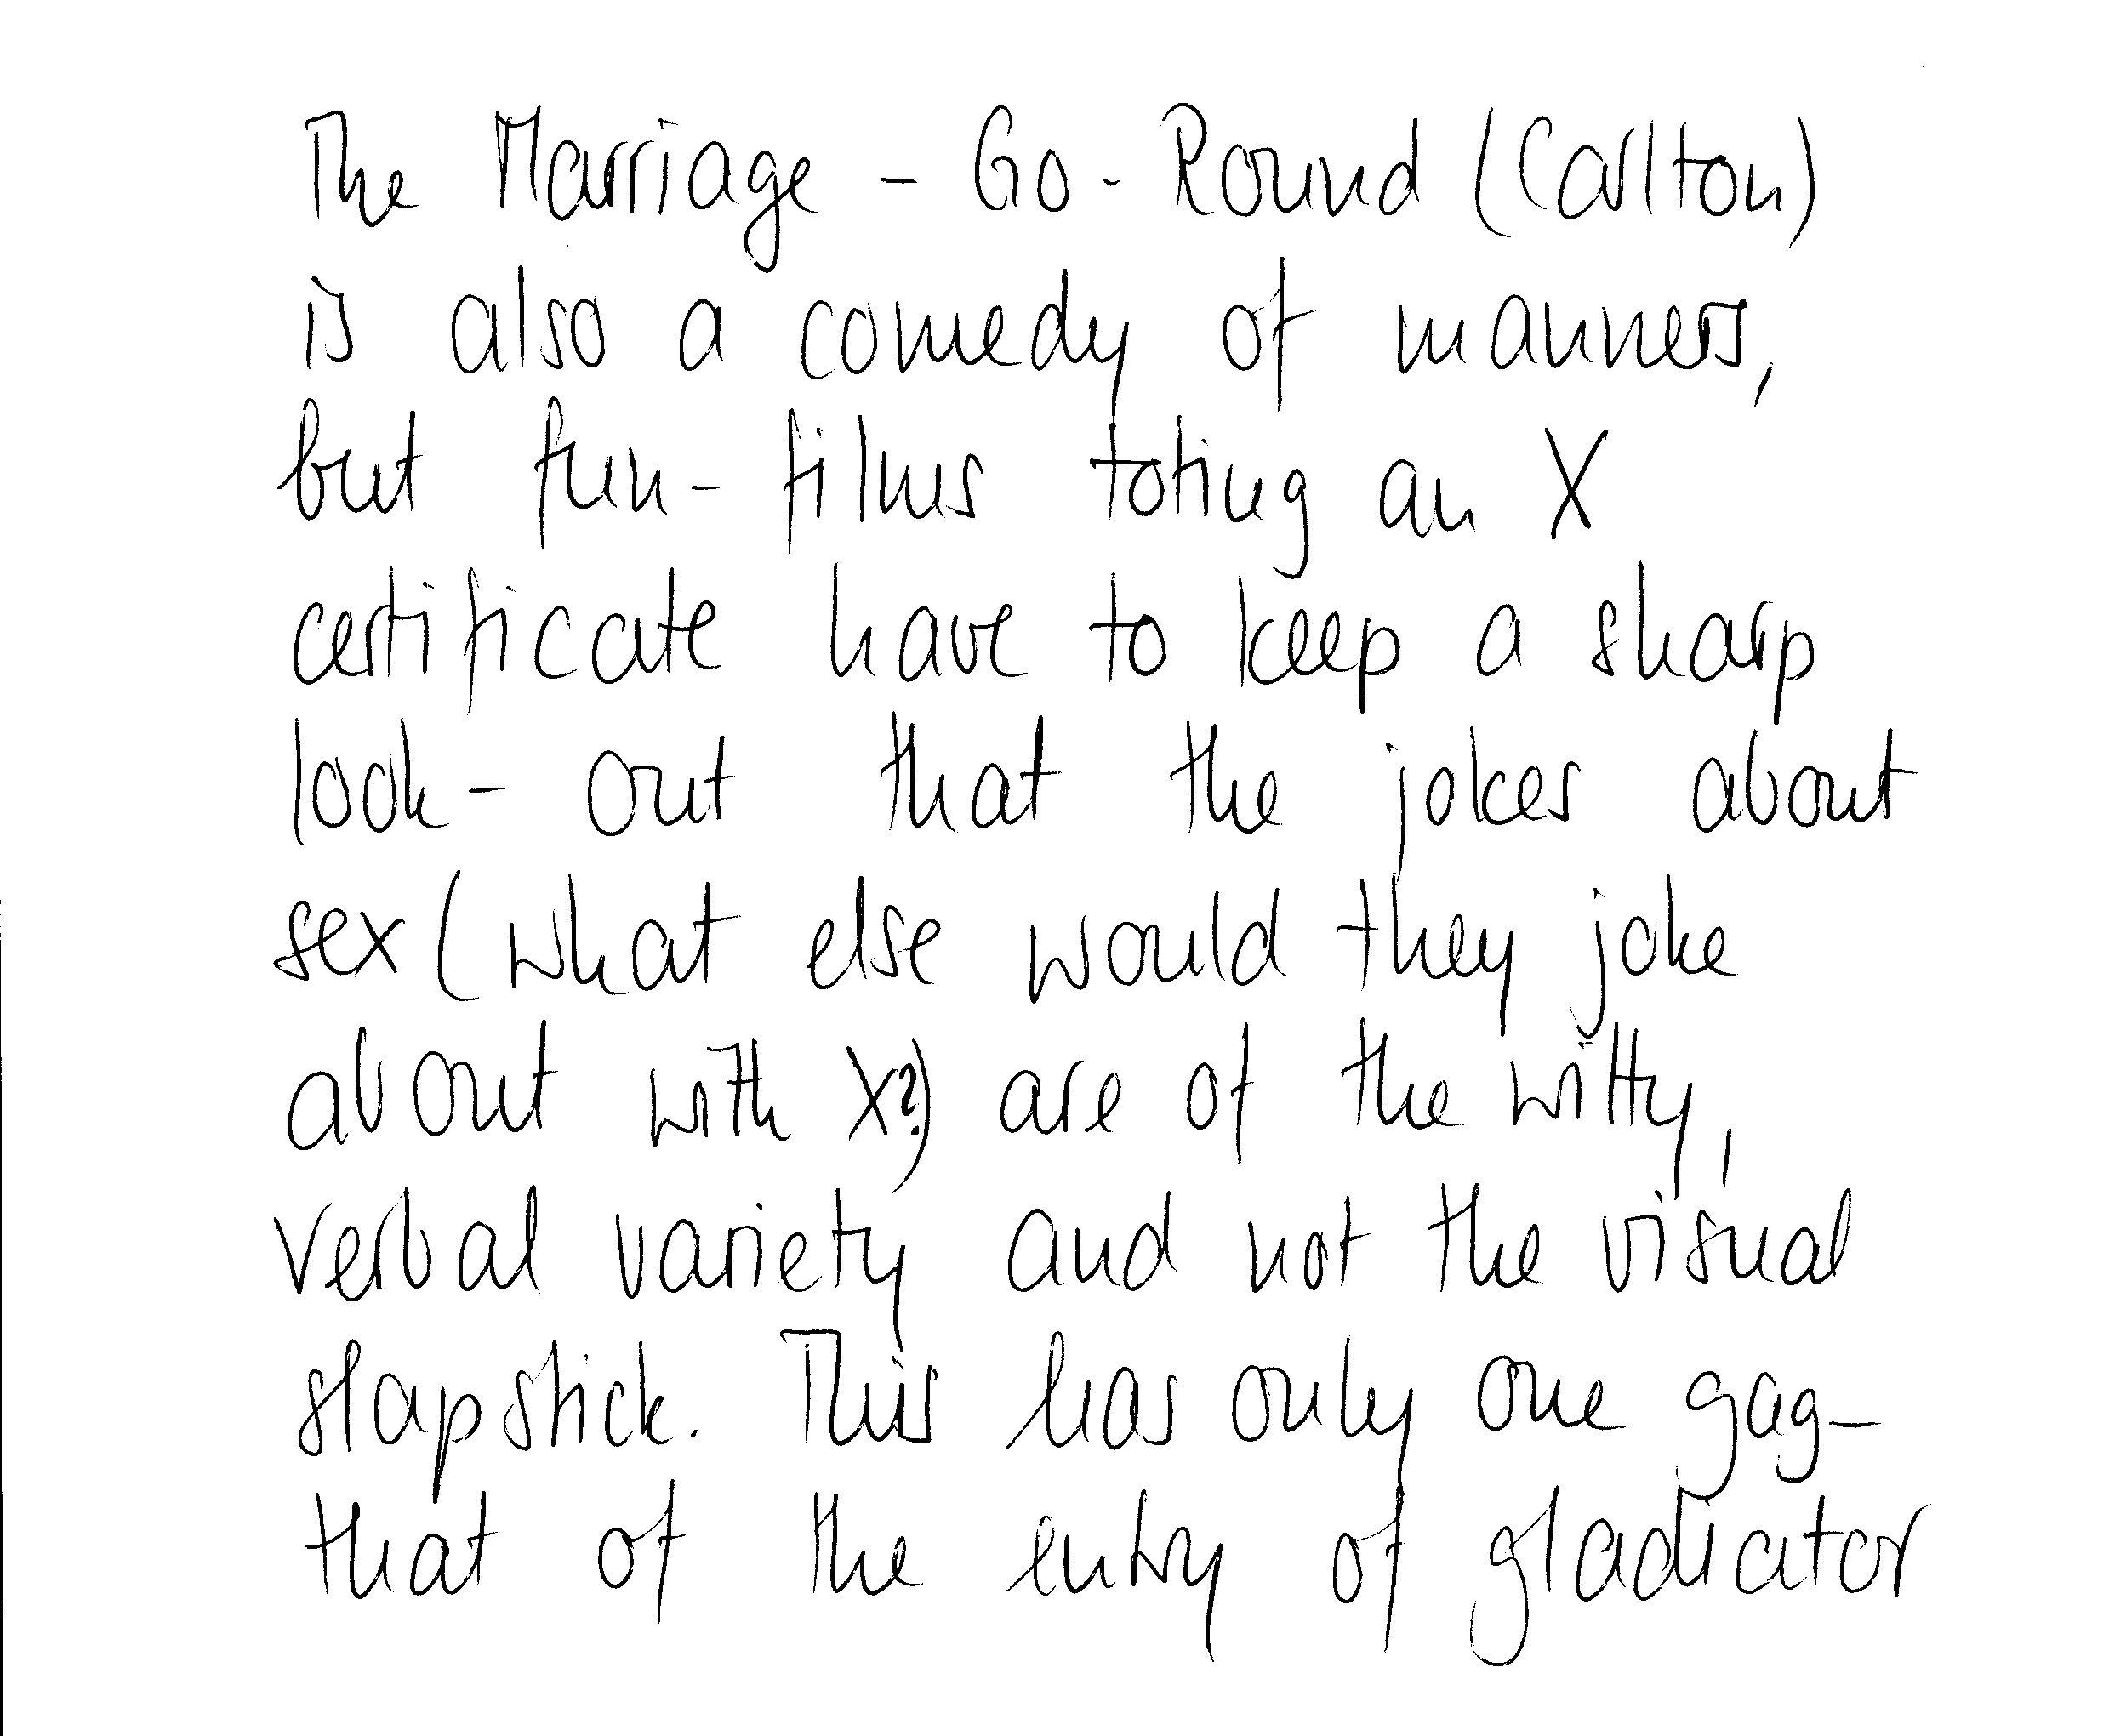 The Marriage-Go-Round (Carlton)
is also a comedy of manners,
but fun-films toting an X
certificate have to keep a sharp
look-out that the jokes about
sex (what else would they joke
about with X?) are of the witty,
verbal variety and not the visual
slapstick. This has only one gag-
that of the entry of gladiator